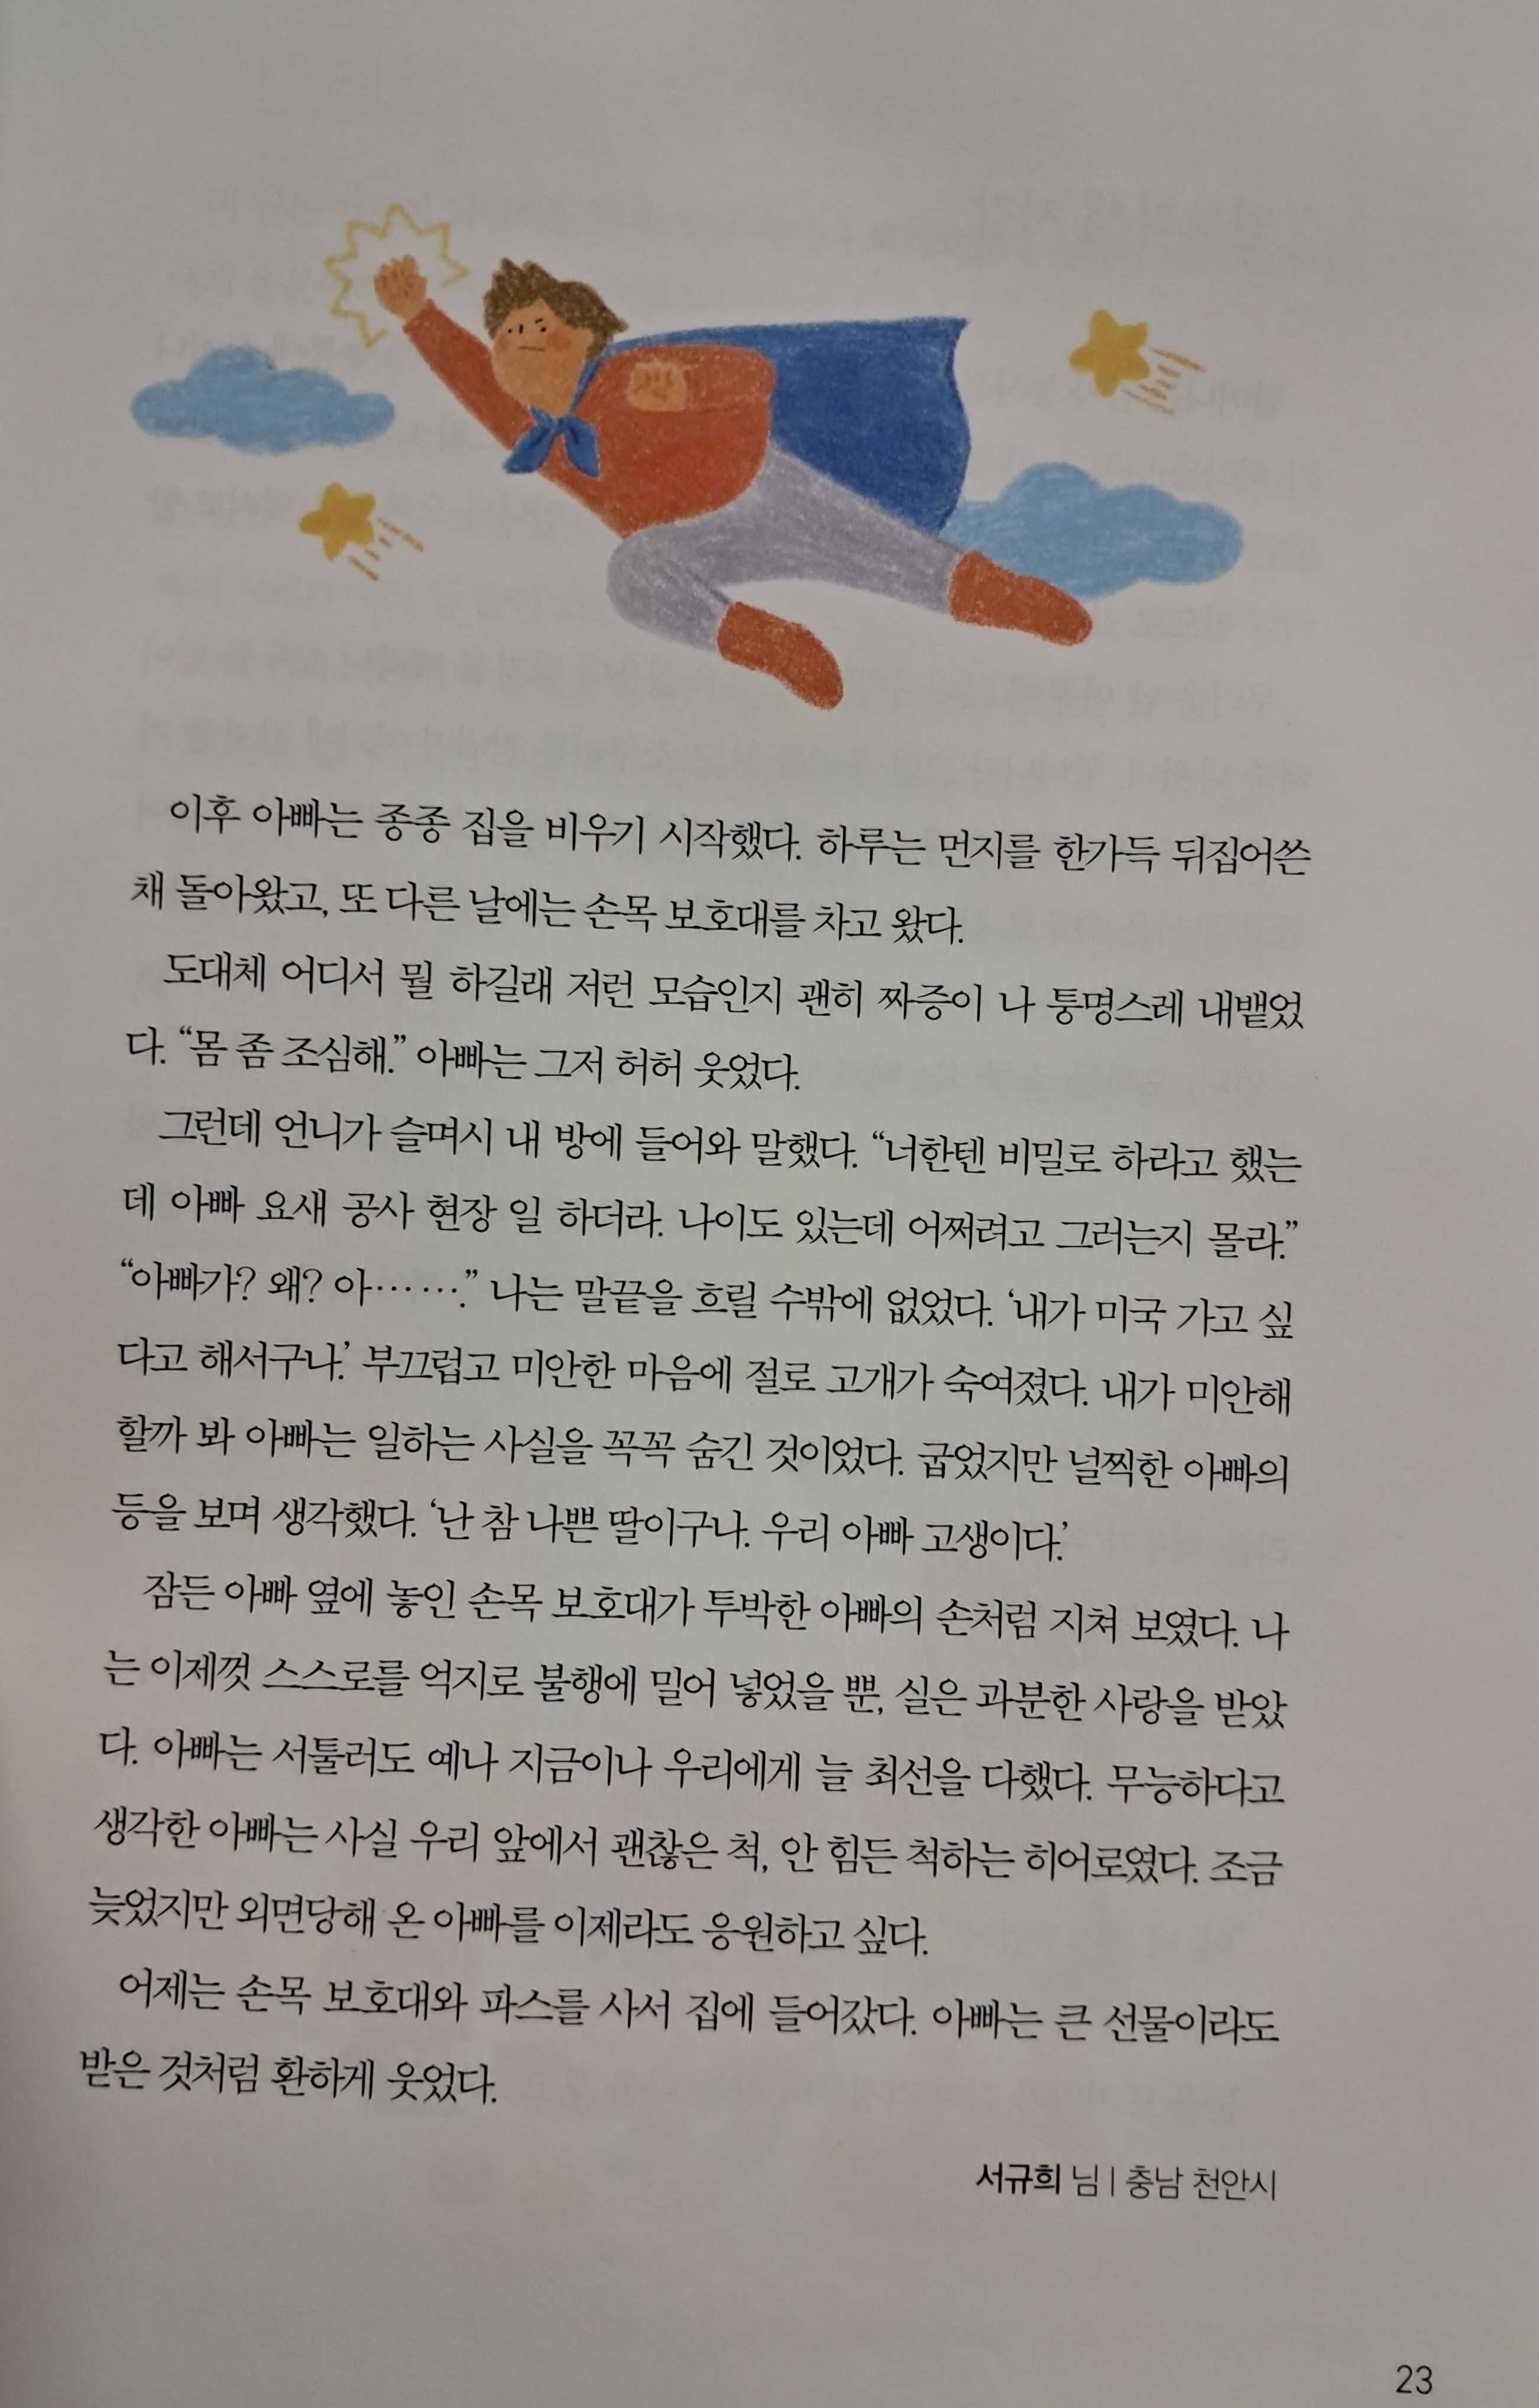 이후 아빠는 종종 집을 비우기 시작했다. 하루는 먼지를 한가득 뒤집어쓴
채 돌아왔고, 또 다른 날에는 손목 보호대를 차고 왔다.
도대체 어디서 뭘 하길래 저런 모습인지 괜히 짜증이 나 퉁명스레 내뱉었
다. “몸 좀 조심해.” 아빠는 그저 허허 웃었다.
그런데 언니가 슬며시 내 방에 들어와 말했다. “너한텐 비밀로 하라고 했는
데 아빠 요새 공사 현장 일 하더라. 나이도 있는데 어쩌려고 그러는지 몰라.”
“아빠가? 왜? 아…….” 나는 말끝을 흐릴 수밖에 없었다. ‘내가 미국 가고 싶
다고 해서구나.’ 부끄럽고 미안한 마음에 절로 고개가 숙여졌다. 내가 미안해
할까 봐 아빠는 일하는 사실을 꼭꼭 숨긴 것이었다. 굽었지만 널찍한 아빠의
등을 보며 생각했다. ‘난 참 나쁜 딸이구나. 우리 아빠 고생이다.’
잠든 아빠 옆에 놓인 손목 보호대가 투박한 아빠의 손처럼 지쳐 보였다. 나
는 이제껏 스스로를 억지로 불행에 밀어 넣었을 뿐, 실은 과분한 사랑을 받았
다. 아빠는 서툴러도 예나 지금이나 우리에게 늘 최선을 다했다. 무능하다고
생각한 아빠는 사실 우리 앞에서 괜찮은 척, 안 힘든 척하는 히어로였다. 조금
늦었지만 외면당해 온 아빠를 이제라도 응원하고 싶다.
어제는 손목 보호대와 파스를 사서 집에 들어갔다. 아빠는 큰 선물이라도
받은 것처럼 환하게 웃었다.
서규희 님 | 충남 천안시
23